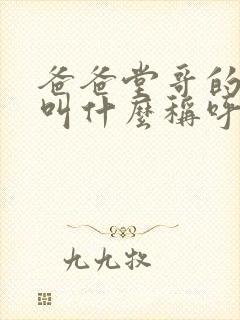 爸爸堂哥的
叫什麼稱呼
九九牧